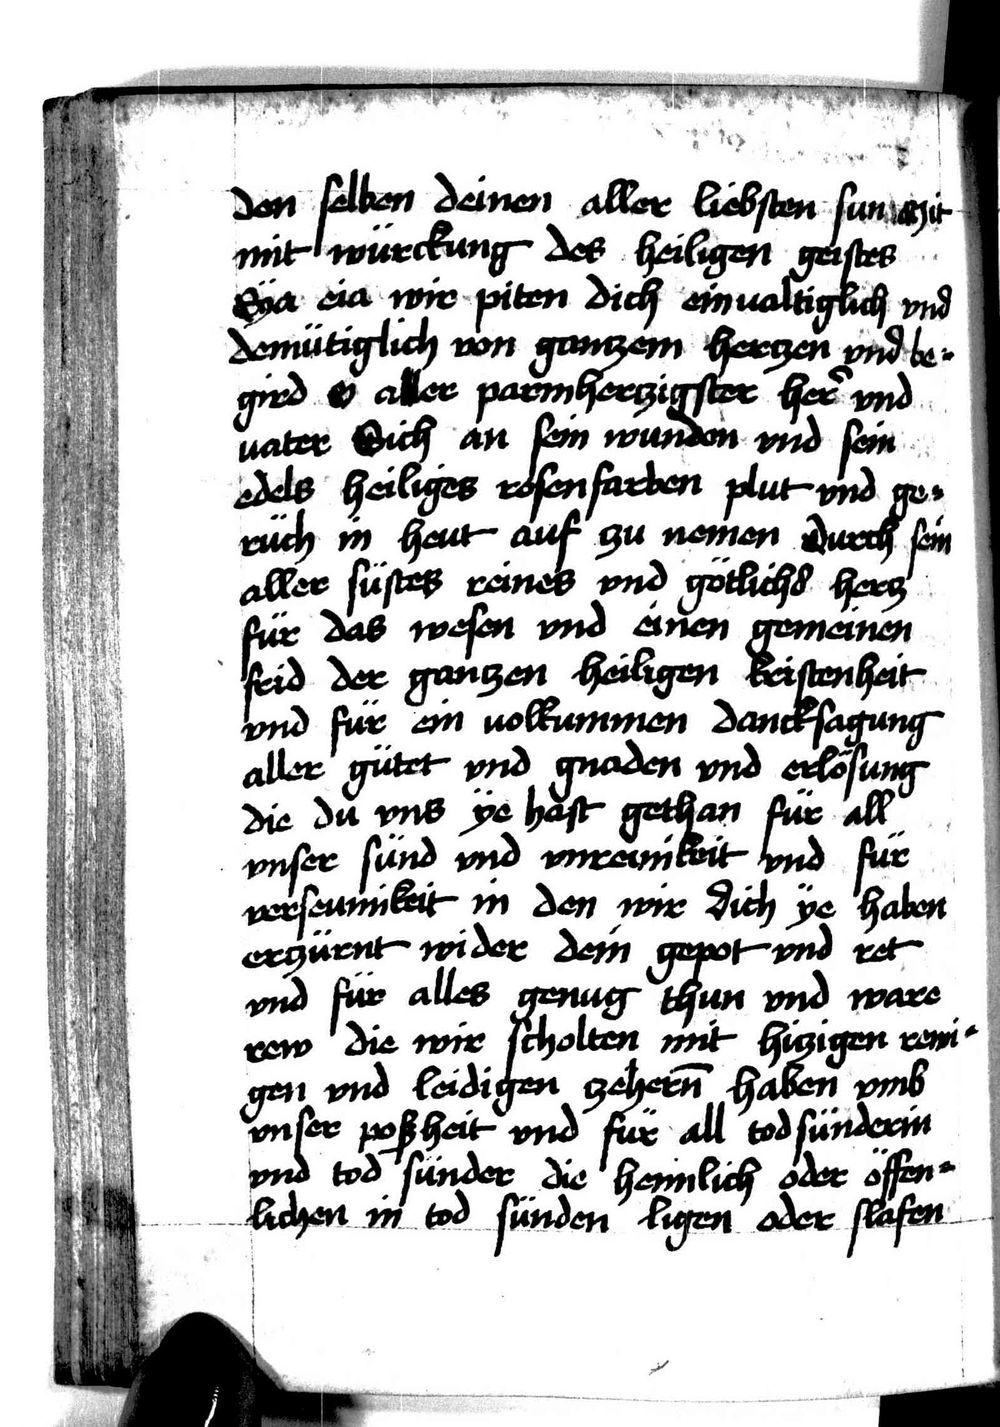 den selben deinen aller liebsten sun mit
mit würckung des heiligen geistes
Eya eia wir piten dich einualtiglich vnd
demütiglich von gantzem hertzen vnd be-
gird O aller parmhertzigster her vnd
vater Sich an sein wunden vnd sein
edels heiliges rosenfarben plut vnd ge-
rüch in heut auf zu nemen Durch sein
aller süstes reines vnd götlichs hertz
für das wesen vnd einen gemeinen
frid der gantzen heiligen kristenheit
vnd für ein volkummen dancksagung
aller gütet vnd gnaden vnd erlösung
die du vns ye hast gethan für all
vnser sünd vnd vnreinikeit vnd für
verseumikeit in den wir dich ye haben
erzürnt wider dein gepot vnd ret
vnd für alles genug thun vnd ware
rew die wir scholten mit hitzigen reini-
gen vnd leidigen zehern̄ haben vmb
vnser poßheit vnd für all tod sünderin
vnd tod sünder die heimlich oder öffen-
lichen in tod sünden ligen oder slafen